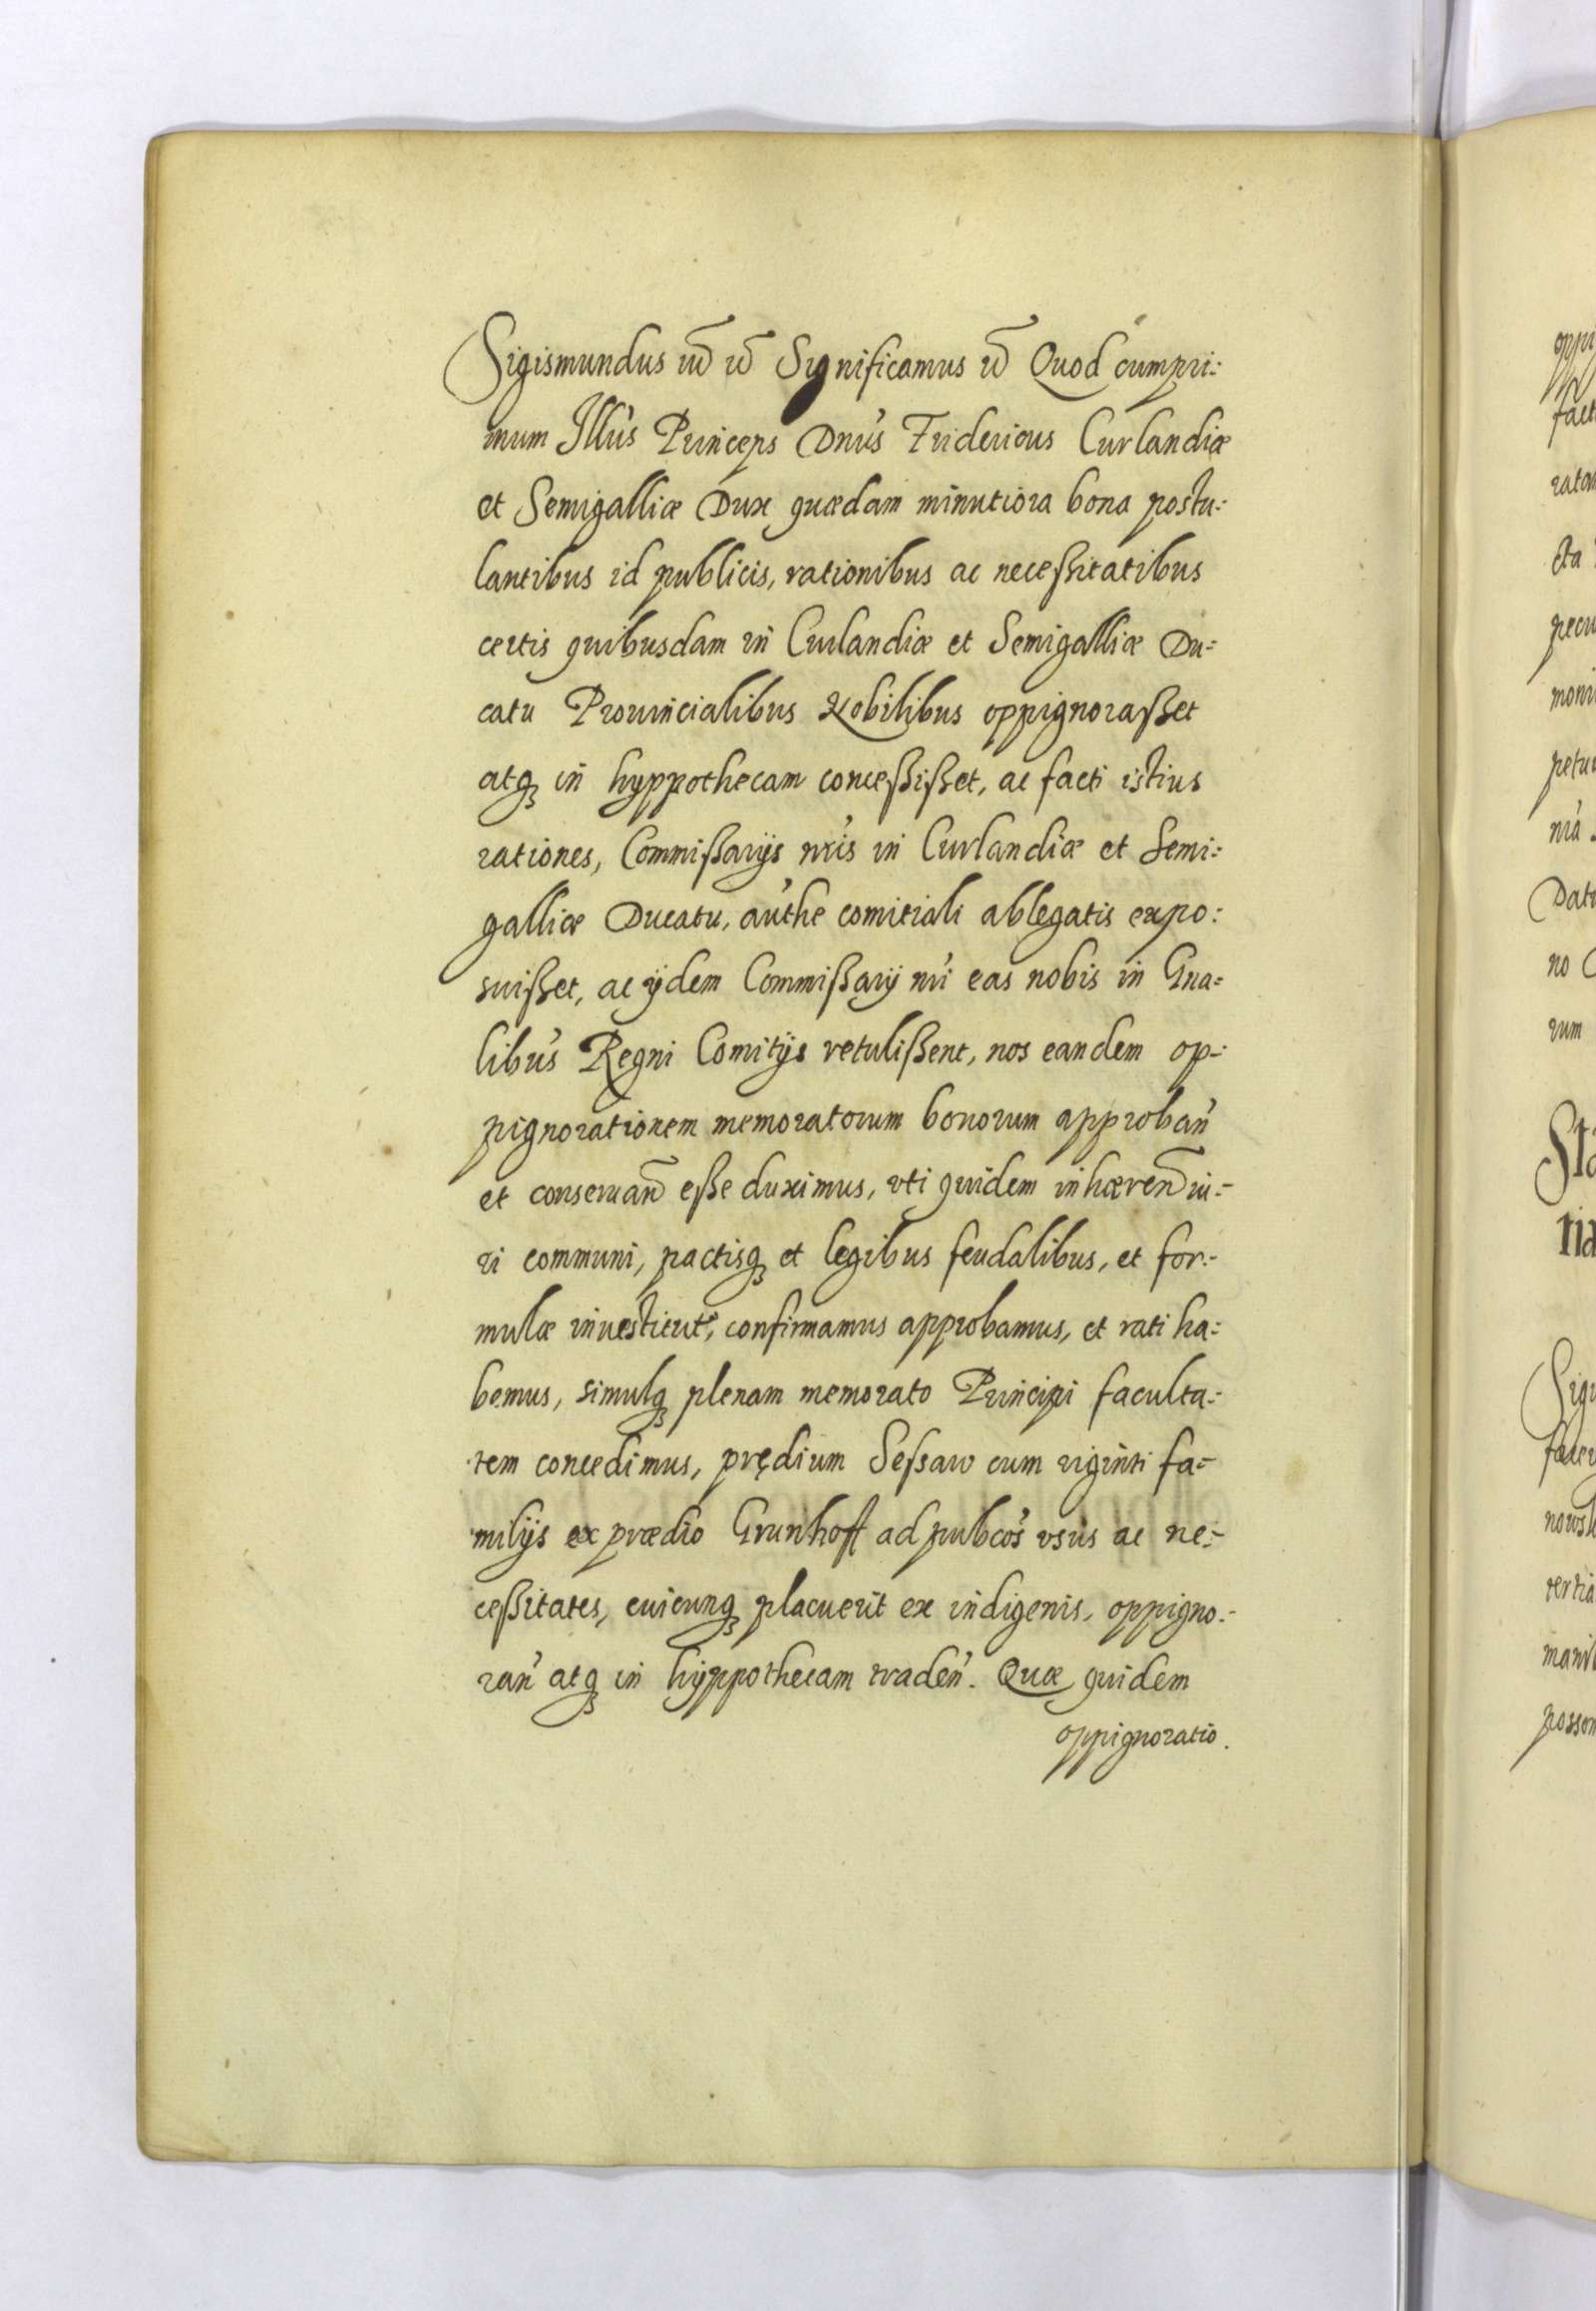 Sigismundus etc̃ etc̃ Significamus etc̃ Quod cumpri:
mum Illu's Princeps Dnu's Fridericus Curlandiæ
et Semigalliæ Dux quædam minutiora bona postu:
lantibus id publicis, rationibus ac neceßitatibus
certis quibusdam in Curlandiæ et Semigalliæ Du=
catu Prouincialibus Nobilibus oppignoraßet
atq3 in hyppothecam conceßißet, ac facti istius
rationes, Commißarijs nr̃is in Curlandiæ et Semi:
galliæ Ducatu, authe comitiali ablegatis expo:
suißet, ac ijdem Commißarij nri eas nobis in Gna=
libu's Regni Comitijs retulißent, nos eandem op-:
pignorationem memoratorum bonorum approban'
et conseruañ eße duximus, vti quidem inhæreñ iu:-
ri communi, pactisq3 et legibus feudalibus, et for:-
mulæ inuestitute', confirmamus approbamus, et rati ha:
bemus, simulq3 plenam memorato Principi faculta:-
tem concedimus, prędium Seßaw cum viginti fa=
milijs ex prædio Grunhoff ad pubco's vsus ac ne:-
ceßitates, cuicunq3 placuerit ex indigenis, oppigno:-
ran' atq3 in hyppothecam traden'. Quæ quidem
oppignoratio.